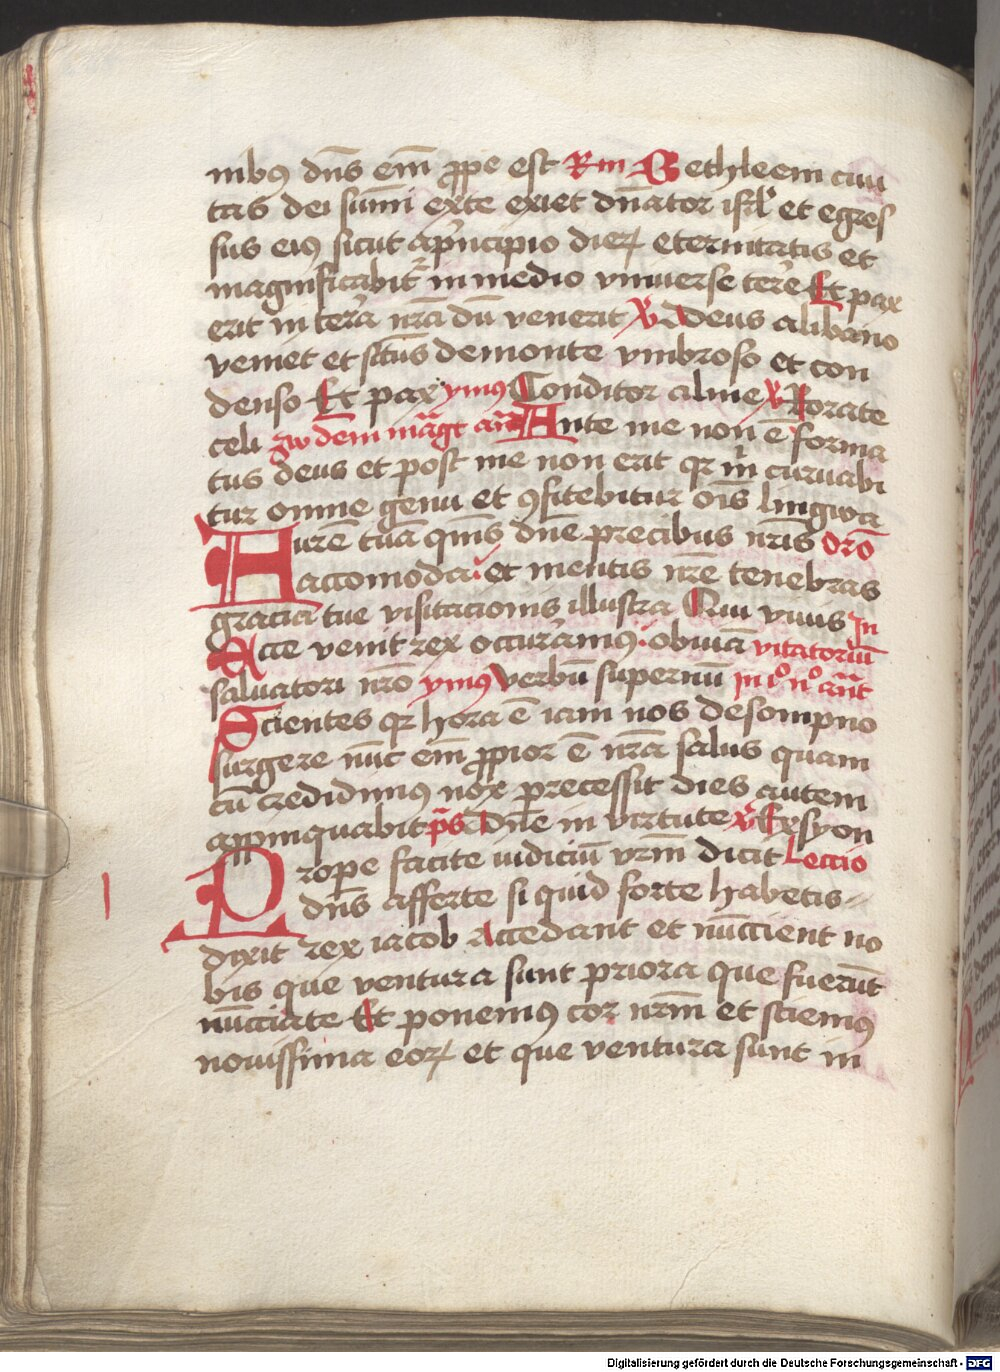 nibꝰ dn̄s em̄ ꝓpe est Rm Bethleem ciui
tas dei sum̄i ex te exiet dn̄ator isrl̄ et egres
sus eiꝰ sicut a pͥncipio dieꝝ eternitatis et
magnificabitͬ in medio vniuerse terͤe Et pax
erit in terͣa nrā dū venerit v̄ Deus a libano
veniet et sctūs de monte vmbroso et con
denso Et pax ymꝰ Conditor alme v̄ Rorate
celi zw dem mag̅t an̄ Ante me non ē forma
tus deus et post me non erit qͥ m̄ curuabi
tur omne genu et ꝯfitebitur oīs lingwa
Aurē tuā q̄m̄s dn̄e precibus nr̄is Orō
accomoda et mentis nr̄e tenebras
gracia tue visitacionis illustra Qui viuis In
Ecce venit rex occurͣamꝰ obuiā vitatoriū
saluatori nr̄o ymꝰ Verbū supernū in iͦ nͦ an̄t
Scientes qͥ hora ē iam nos de sompno
surgere nūc em̄ ꝓpior ē nrā salus quam
cū credidimꝰ nox precessit dies autem
appͥnquabit p̄s Dn̄e in virtute v̄ Ex syon
Prope facite iudiciū vrm̄ dicit Leccio
dn̄s afferte si quid forte habetis
dixit rex iacob Accedant et nūccient no
bis que ventura sunt priora que fuerūt
nūcciate Et ponemꝰ cor nrm̄ et sciemꝰ
nouissima eoꝝ et que ventura sunt in
Digitalisierung gefördert durch die Deutsche Forschungsgemeinschaft - DFG